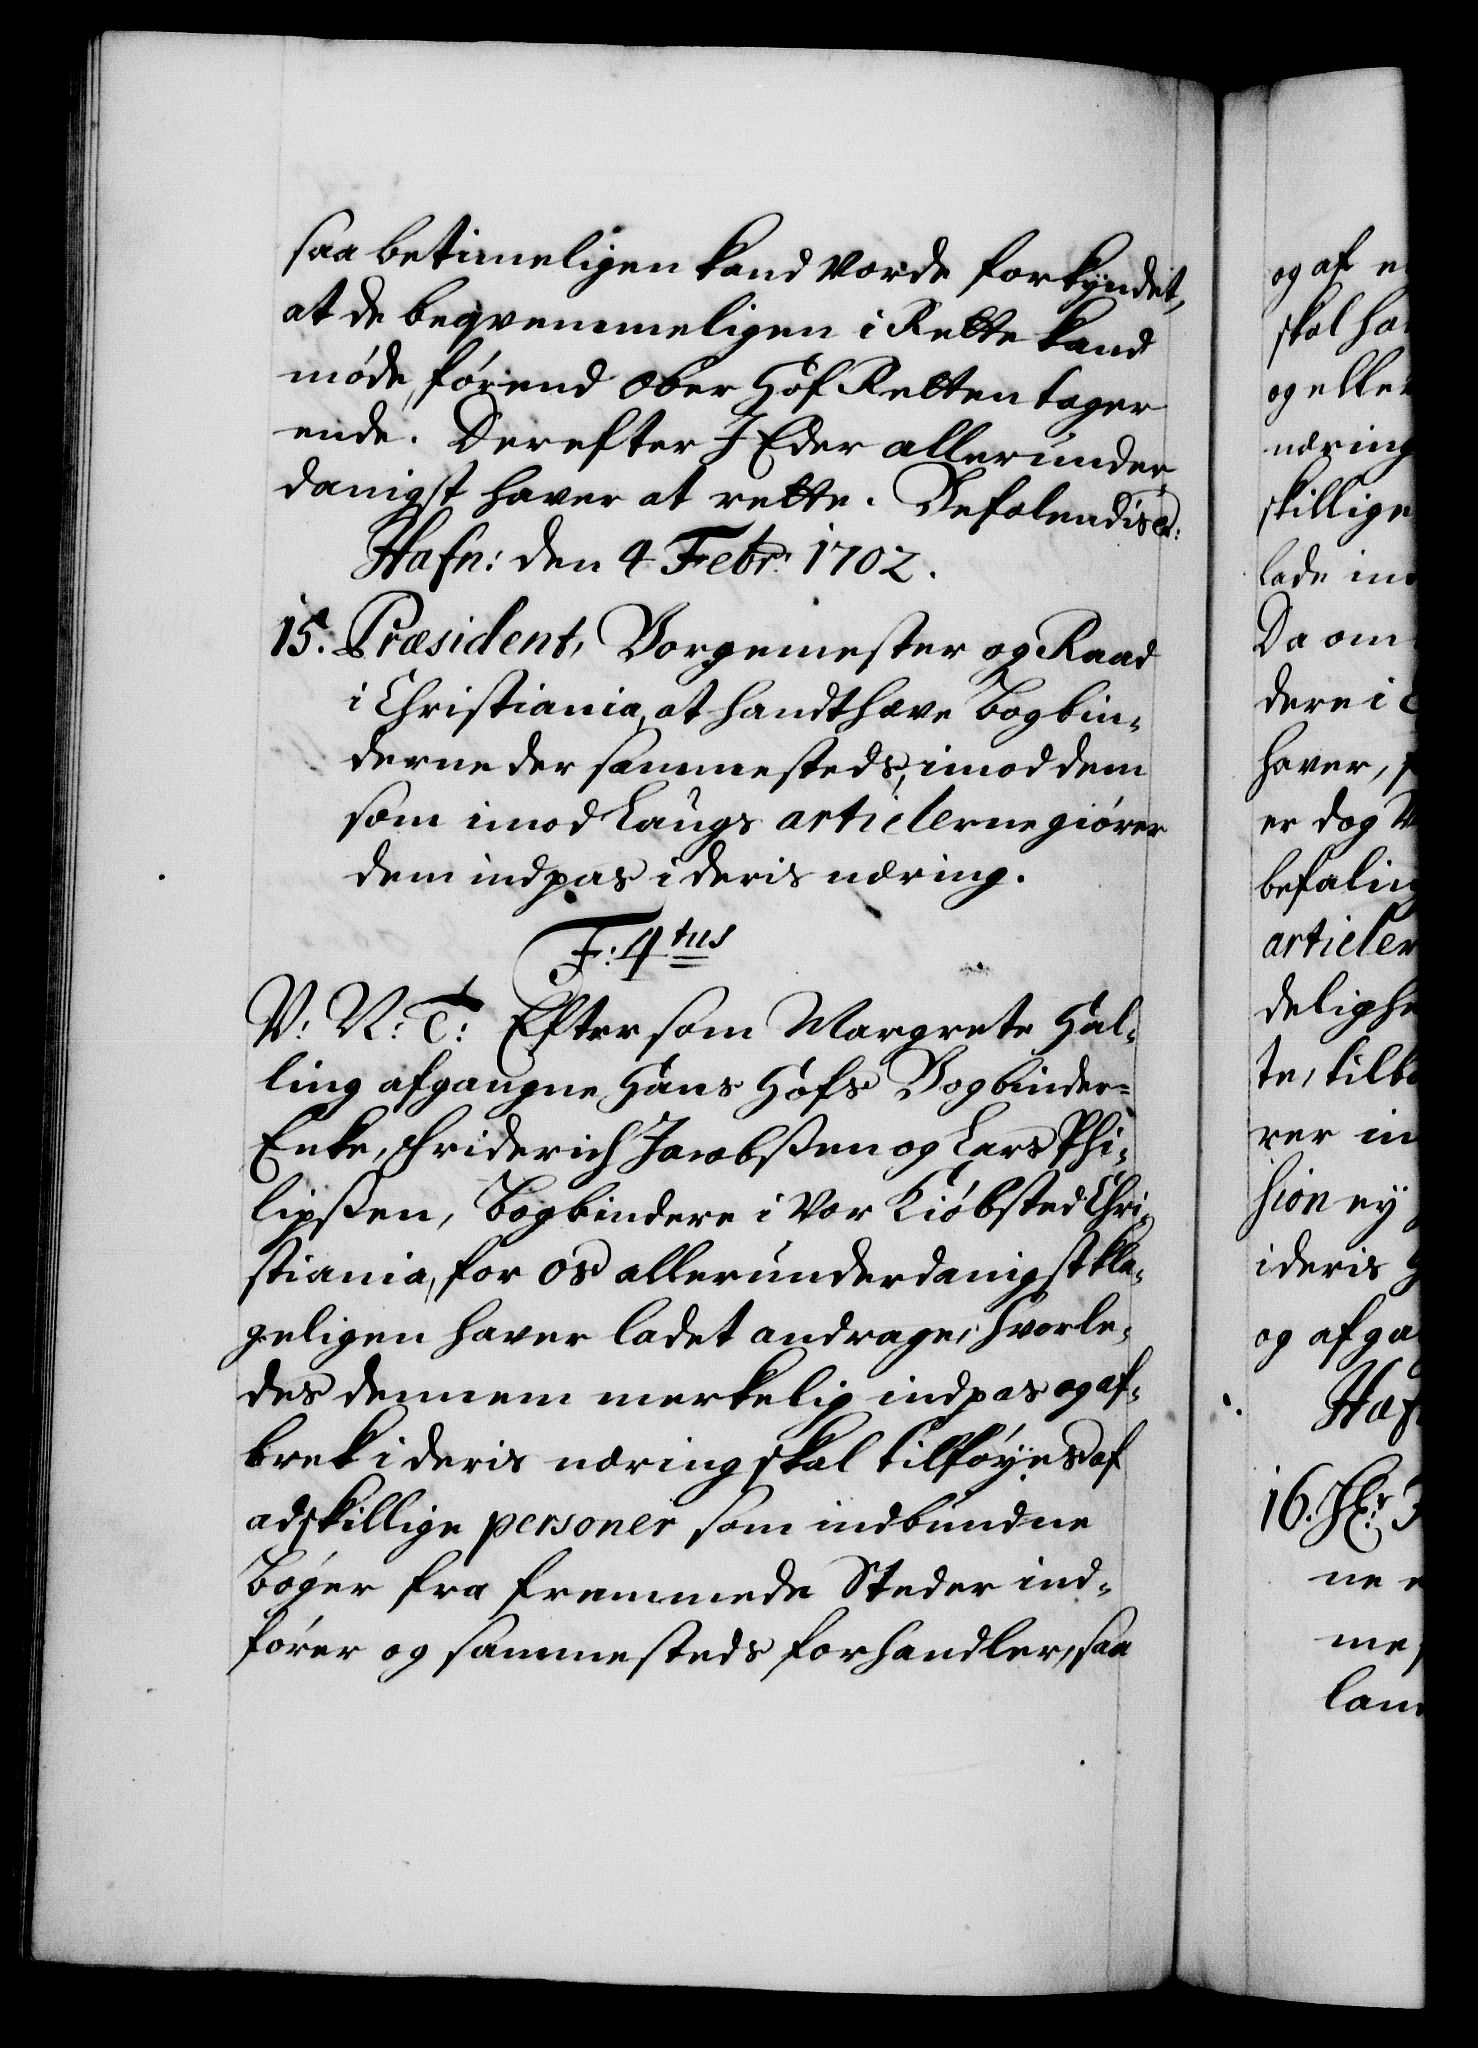 saa betimeligen kand vorde forkyndet,
at de beqvemmeligen i Rette kand
møde, førend Ober Hof Retten tager
ende. Derefter I Eder allerunder„
danigst haver at rette. Befalendis &:
Hafn: den 4 Febr: 1702.
15. Præsident, Borgemester og Raad
i Christiania, at handthæve Bogbin„
derne der sammesteds, imod dem
som imod Laugs articlerne giører
dem indpas i deris næring.
F: 4tus
V: N: T: Eftersom Margrete Hal„
ling afgangne Hans Hofs Bogbinder=
Enke, Friderich Jacobßen og Lars Phi„
lipßen, Bogbindere i Vor Kiøbsted Chri„
stiania, for os allerunderdanigst kla„
geligen haver ladet andrage, hvorle„
des dennem merkelig indpas og af„
brek i deris næring skal tilføyes af
adskillige personer som indbundne
Bøger fra fremmede Steder ind„
fører og sammesteds forhandler, saa
og af
skal
og eller
næring
skillige
lade
Da om
dere i
haver,
er dog
befaling
articler
te,
rer
sion ey
i deris
og
16.
ne